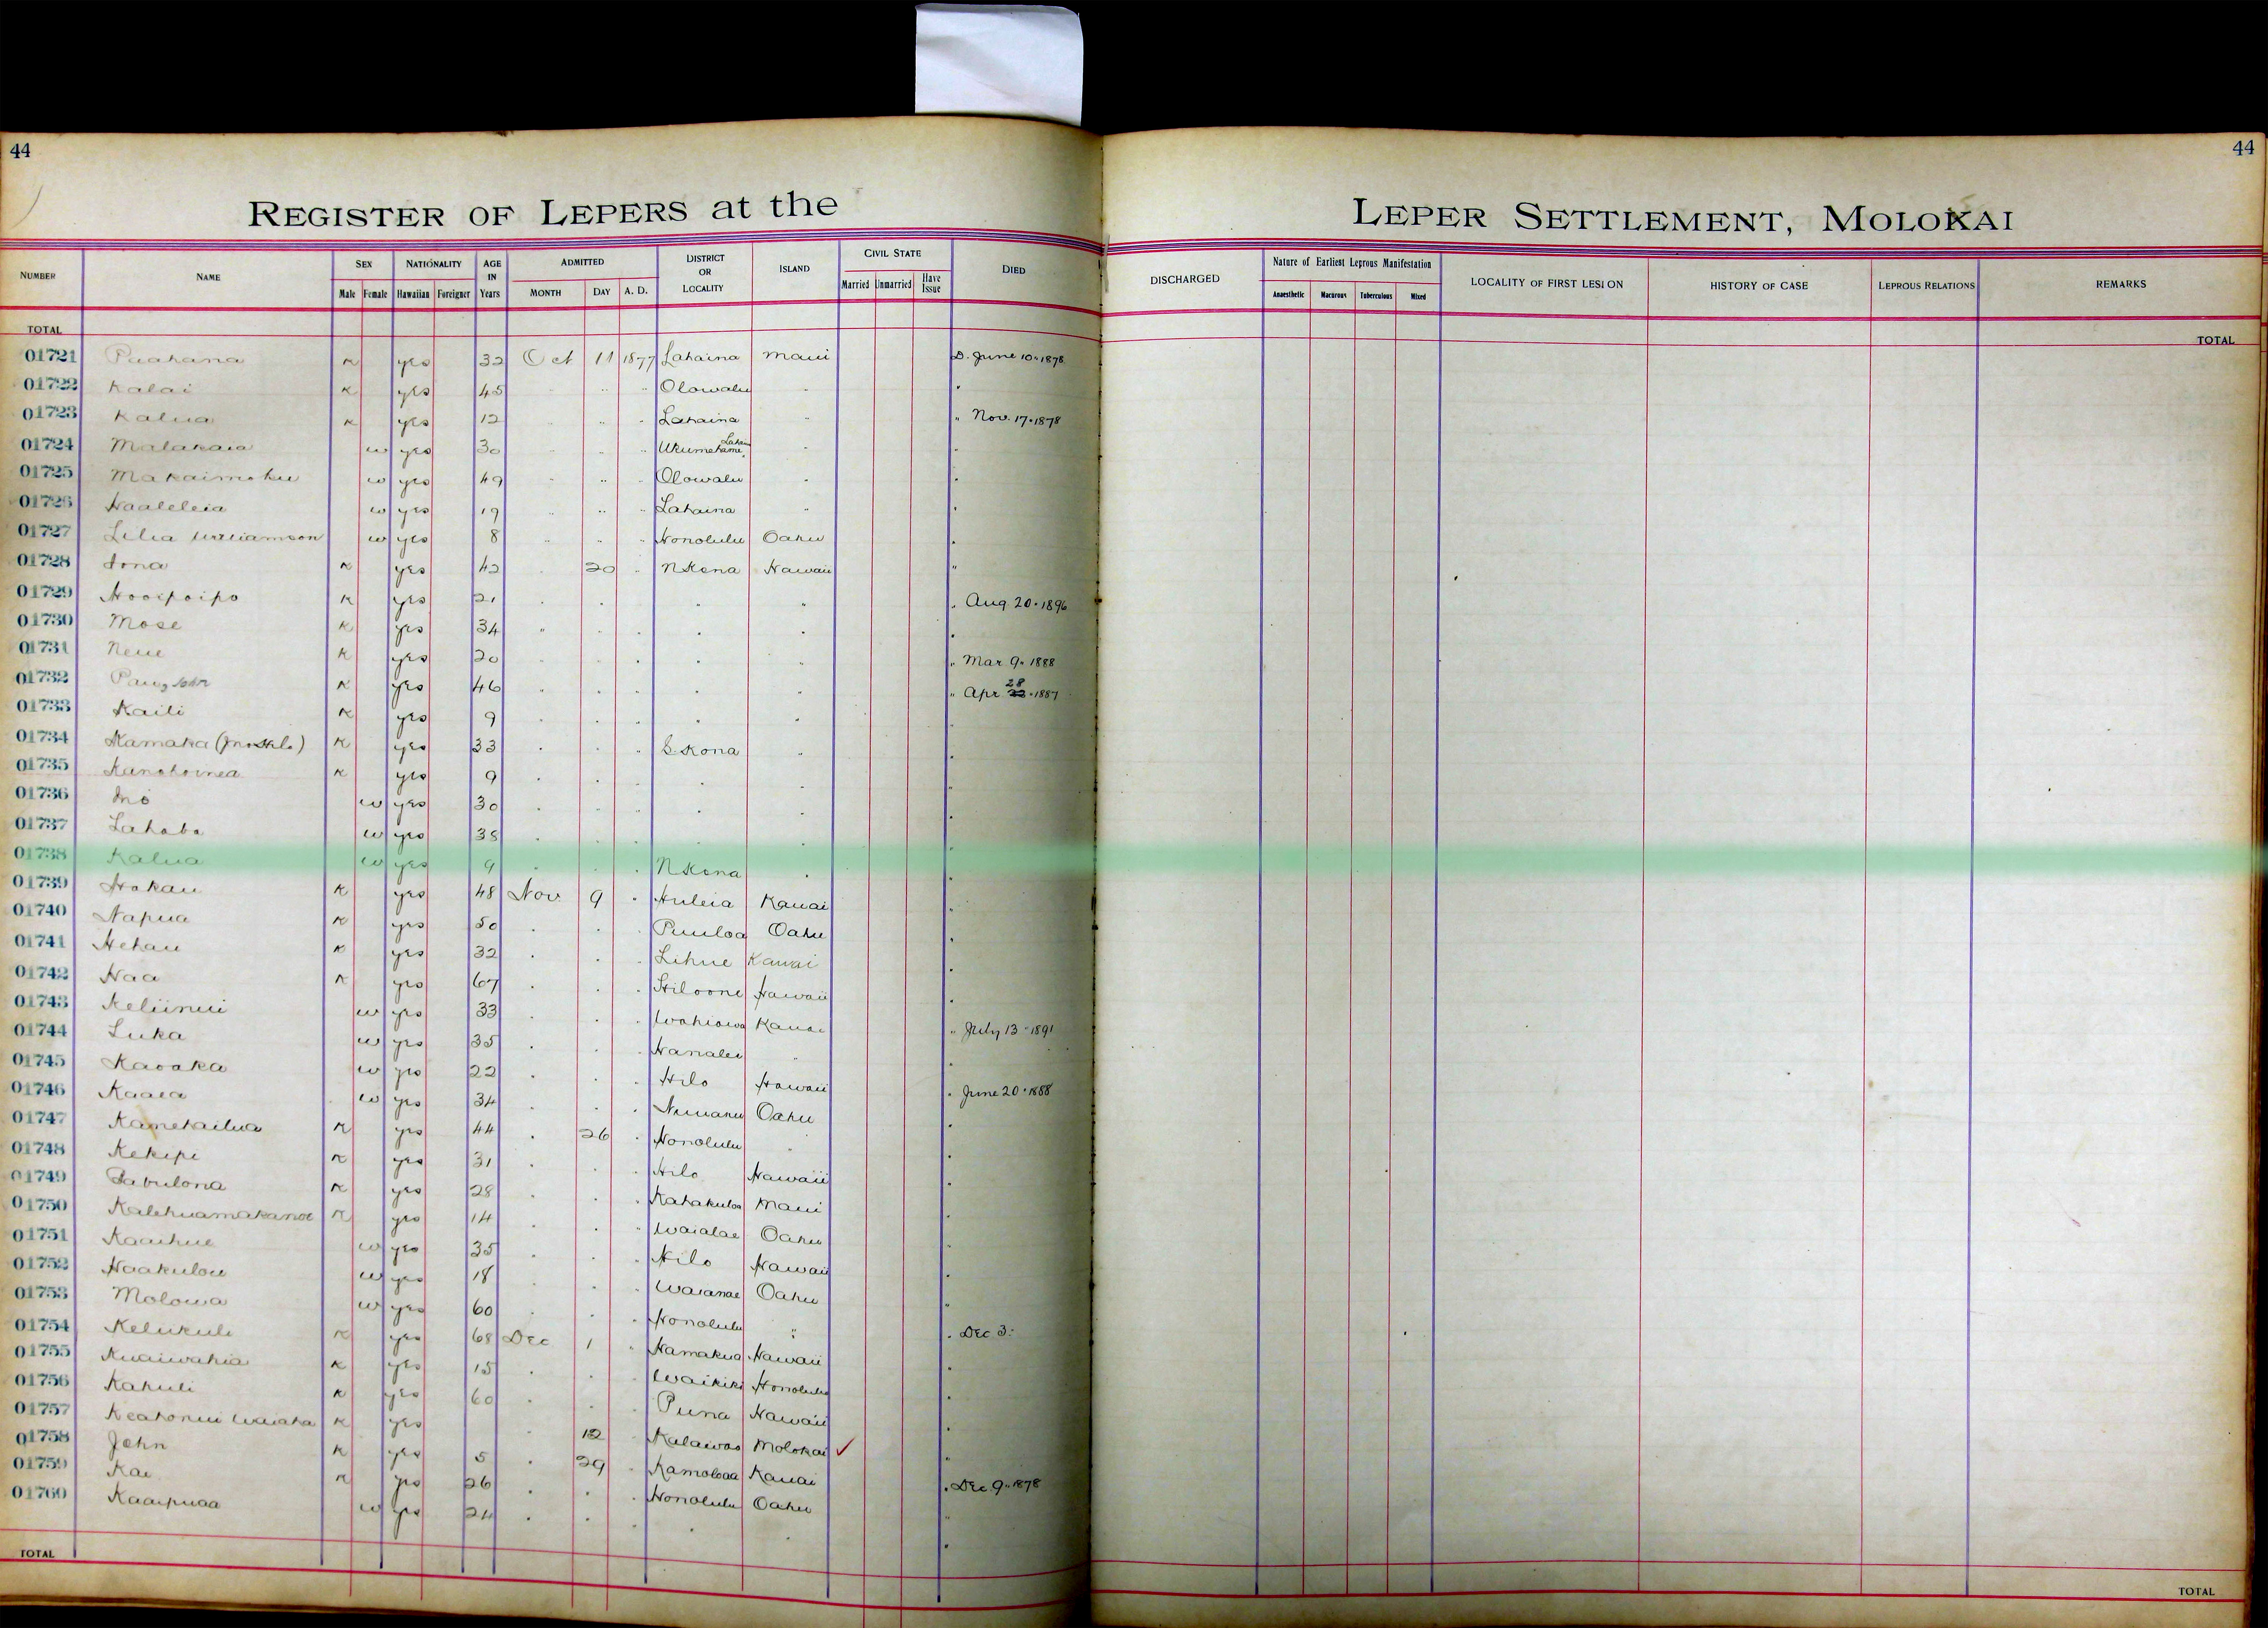 44
44
REGISTER OF LEPERS at the LEPER SETTLEMENT, MOLOKAI
NUMBER NAME SEX NATIONALITY AGE IN Years ADMITTED DISTRICT OR LOCALITY ISLAND CIVIL STATE DIED DISCHARGED Nature of Earliest Leprous Manifestation LOCALITY OF FIRST LESION HISTORY OF CASE LEPROUS RELATIONS REMARKS
Male Female Hawaiian Foreigner MONTH DAY A. D. Married Unmarried Have Issue Anaesthetic Macurous Tuberculous Mixed
TOTAL TOTAL
01721 Puahana K yes 32 Oct 11 1877 Lahaina Maui D. June 10 " 1878
01722 Kalai K yes 45 " " Olowalu " "
01723 Kalua K yes 12 " " " Lahaina " " Nov. 17 " 1878
01724 Malakaia w yes 30 " " " Ukumehame " "
01725 Makaimoku w yes 49 " " " Olowalu " "
01726 Haaleleia w yes 19 " " " Lahaina " "
01727 Lilia Williamson w yes 8 " " " Honolulu Oahu "
01728 Iona K yes 42 " 20 " N Kona Hawaii "
01729 Hooipoipo K yes 21 " " " " " Aug. 20 " 1896
01730 Mose K yes 34 " " " " " "
01731 Neue K yes 20 " " " " " " Mar. 9 " 1888
01732 John K yes 46 " " " " " " Apr 28 " 1887
01733 Kaili K yes 9 " " " " "
01734 Kamaka K yes 33 " " " S. Kona " "
01735 Kanohoinea K yes 9 " " " " "
01736 w yes 30 " " " " "
01737 Lahaba w yes 38 " " " "
01738 Kalua w yes 9 " " N Kona " "
01739 Hokau K yes 48 Nov 9 " Huleia Kauai "
01740 Napua K yes 50 " " " Puuloa Oahu "
01741 Hehau K yes 32 " " " Lihue Kauai "
01742 Naa K yes 67 " " " Hiloone Hawaii "
01743 Keliinui w yes 33 " " " Wahiawa Kauai " July 13 " 1891
01744 Luka w yes 35 " " " Hanalei " "
01745 Kaoaka w yes 22 " " " Hilo Hawaii " June 20 " 1888
01746 Kaaea w yes 34 " " " Nuuanu Oahu "
01747 Kamehailua K yes 44 " 26 " Honolulu " "
01748 Kekipi K yes 31 " " " Hilo Hawaii "
01749 Pabulona K yes 28 " " " Kahakuloa Maui "
01750 Kalehuamakanoe K yes 14 " " " Waialae Oahu "
01751 Kaaihue w yes 35 " " " Hilo Hawaii "
01752 Haakulou w yes 18 " " " Waianae Oahu "
01753 Molowa w yes 60 " " " Honolulu " " Dec 3 "
01754 Kelukuli K yes 68 Dec 1 " Hamakua Hawaii "
01755 Kuaiwahia K yes 15 " " Waikiki Honolulu "
01756 Kahuli K yes 60 " " Puna Hawaii "
01757 Keahonui Waiaha K yes " 12 Kalawao Molokai ✓ "
01758 John K yes 5 " 29 " Kamoloaa Kauai " Dec 9 " 1878
01759 Kai K yes 26 " " " Honolulu Oahu "
01760 Kaaipuaa w yes 24 " " " " " "
TOTAL TOTAL